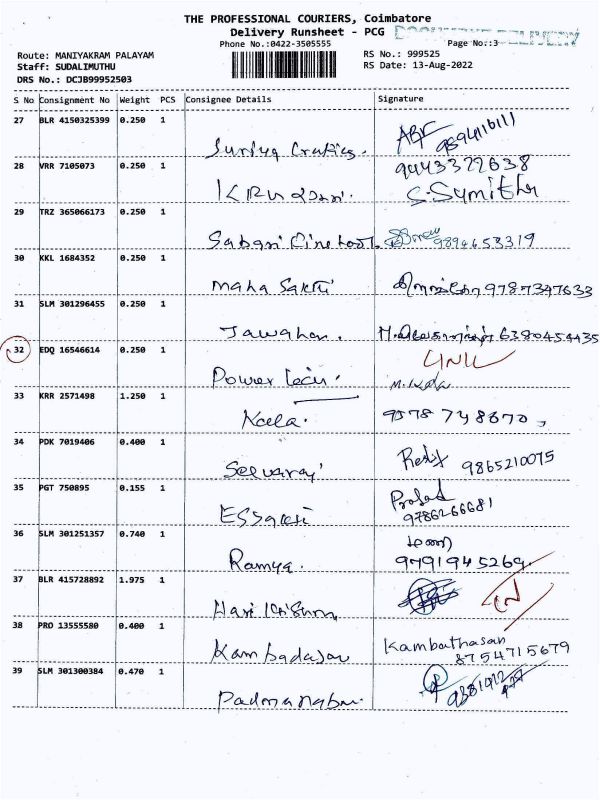 THE PROFESSIONAL COURIERS, Coimbatore
Delivery Runsheet - PCG
DOCUMENT DELIVERY
Phone No.:0422-3505555
Page No.:3
Route: MANIYAKRAM PALAYAM
RS No.: 999525
Staff: SUDALIMUTHU
RS Date: 13-Aug-2022
DRS No.: DCJB99952503
S No Consignment No Weight PCS Consignee Details Signature
27 BLR 4150325399 0.250 1
9894116111
Suriya
28 VRR 7105073 0.250 1 9443322638
S. Sumithr
29 TRZ 365066173 0.250 1
Sabari Cine 9894653319
30 KKL 1684352 0.250 1
Maha Sakthi 9787347633
31 SLM 301296455 0.250 1
Jawahar. 6380454435
32 EDQ 16546614 0.250 1
Power Tech.
33 KRR 2571498 1.250 1
Kala. 9578748670
34 PDK 7019406 0.400 1
Selvaraj 9865210075
35 PGT 750895 0.155 1 Prasad
Essakki 9786266681
36 SLM 301251357 0.740 1 மணி
Ramya. 9791945269.
37 BLR 415728892 1.975 1
Hari
38 PRO 13555580 0.400 1 Kambathasan
Kambadasan 8754715679
39 SLM 301300384 0.470 1
Padmanaban.